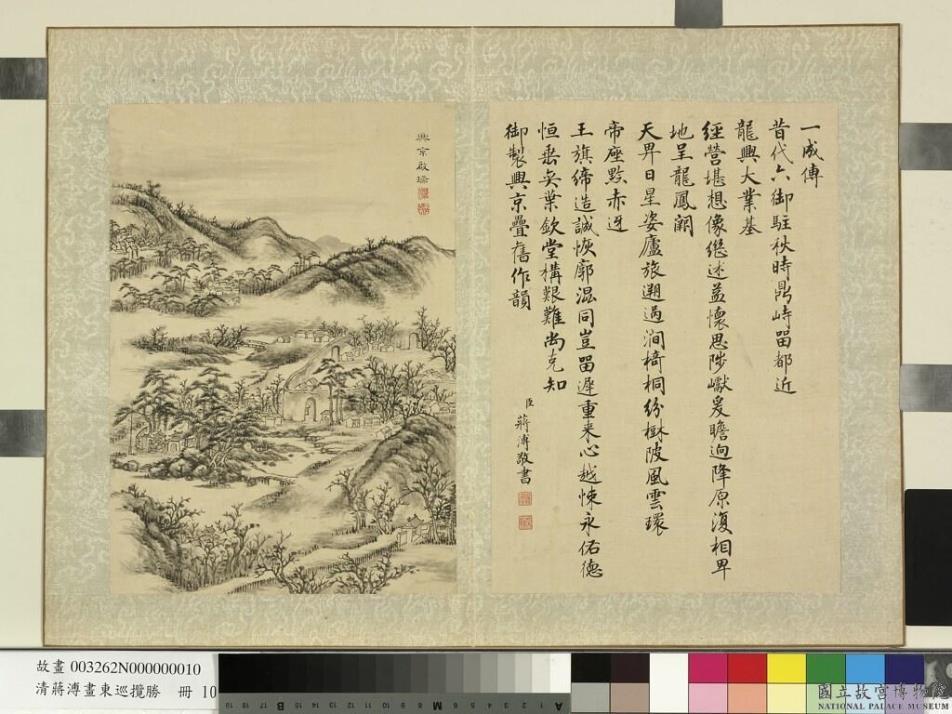 一成傳
昔代六御駐秋時鼎峙留都近
龍興大業基
經營堪想像繼述益懷思陟巘爰瞻迥降原復相畀
地呈龍鳳闕
天畀日星姿廬旅遡過澗椅桐紛樹陂風雲環
帝座黔赤迓
王旗締造誠恢廓混同豈留遲重來心越悚永佑德
恒垂奕葉欽堂構艱難尚克知
御製興京疊舊作韻
臣蔣溥敬書
興京啟瑞
故畫 003262N000000010
清蔣溥畫東巡攬勝 冊 10
國立故宮博物院
NATIONAL PALACE MUSEUM